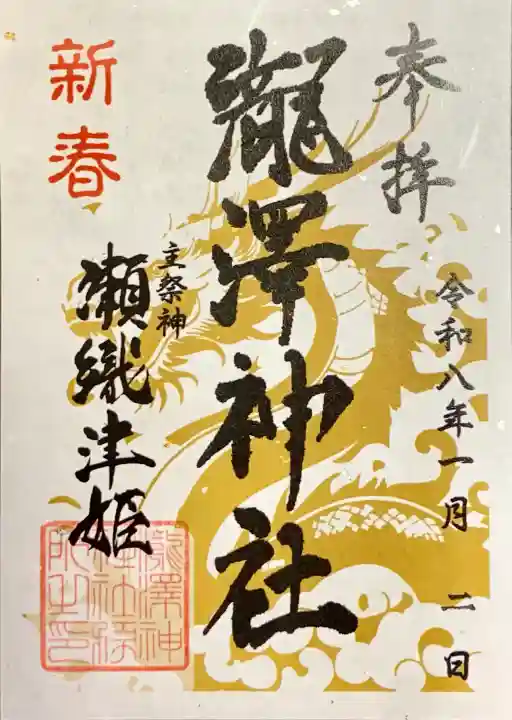 奉拝
令和八年一月二日
瀧澤神社
新春
主祭神
瀬織津姫
瀧澤神